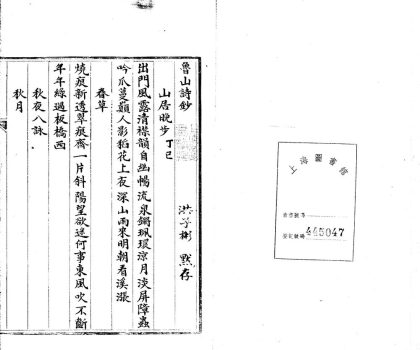 魯山詩鈔
洪子彬 默存
山居晚步 丁巳
出門風露清襟韻自幽暢流泉鐲珮環涼月淡屏障蟲
吟瓜蔓巔人影稻花上夜深山雨來明朝看溪漲
春草
燒痕新透翠痕齊一片斜陽望欲迷何事東風吹不斷
年年綠過板橋西
秋夜八詠
秋月
登記號碼 445047